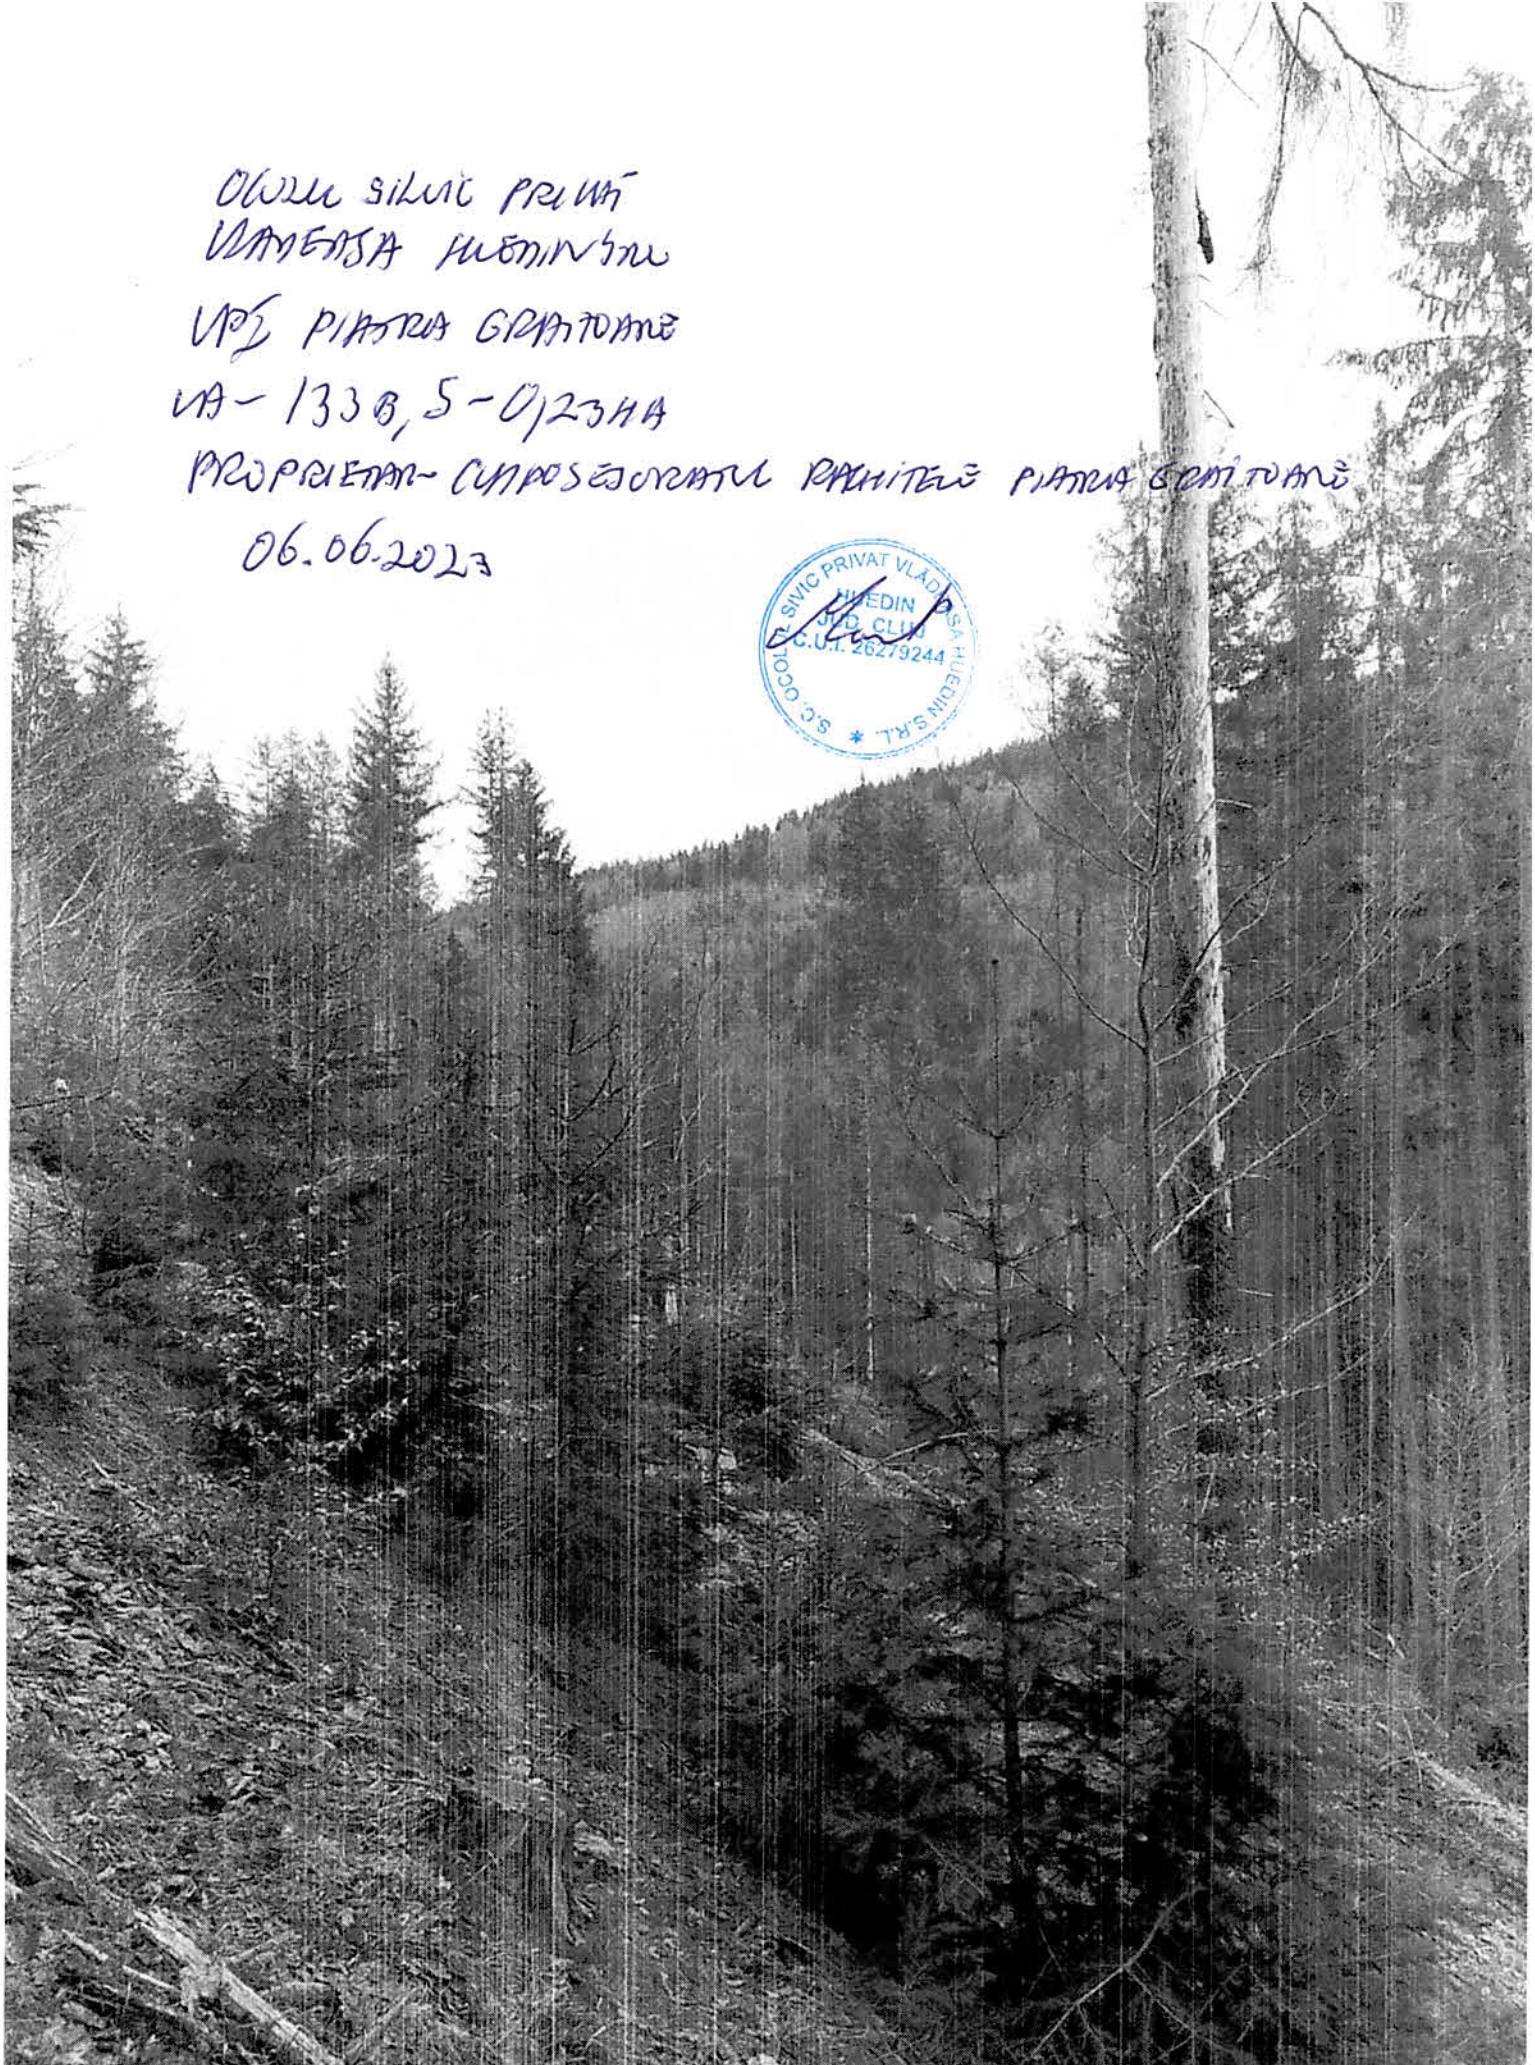 OCOLU SILVIC PRIVAT
VLADEASA HUEDIN SRL
UPI PIATRA GRAITOARE
UA - 133B, S - 0,23HA
PROPRIETAR - COMPOSESORATUL RACHITELE PIATRA GRAITOARE
06.06.2023
S.C. OCOLUL SIVIC PRIVAT VLĂDEASA HUEDIN S.R.L. *
HUEDIN
JUD. CLUJ
C.U.I. 26279244